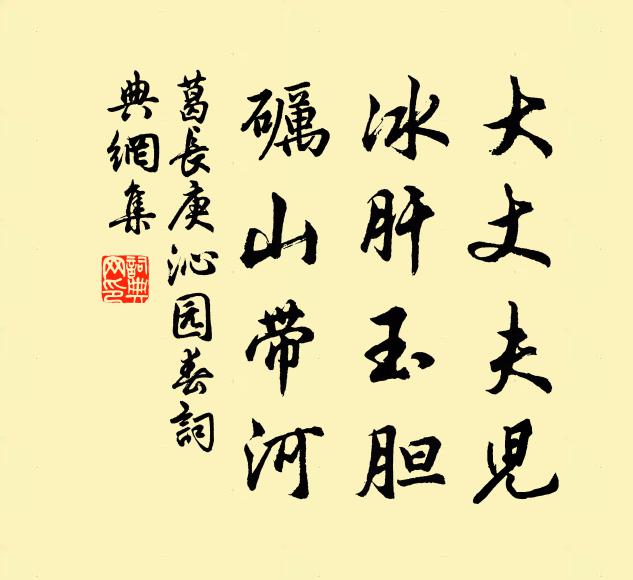 大丈夫児
冰肝玉胆
礪山带河
葛長庚沁园春詞
典網集
詞典网印